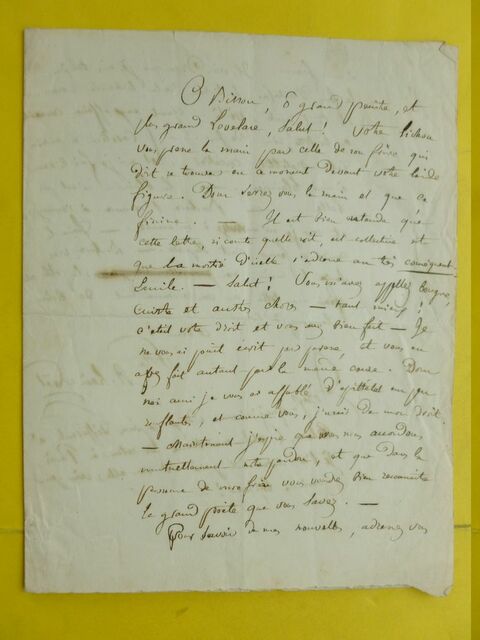 O Bitron, ô grand peintre, et
plus grand Lovelace, Salut ! Votre
vous prene la main par celle de son frère qui
doit se trouver en ce moment devant votre laide
figure. Donc serrez vous la main et que ça
finisse. — Il est bien entendu que
cette lettre, si courte quelle soit, est collective et
que la moitié d'icelle s'adresse au très conséquent
Emile. — Salut ! Vous m'avez appellé
cuistre et autres choses — tant mieux !
c'était votre droit et vous avez bien fait — Je
ne vous ai point écrit par paresse, et vous en
avez fait autant par la même cause. Donc
moi aussi je vous ai affublé d'épithètes un peu
ronflantes, et comme vous, j'usais de mon droit.
— Maintenant j'espère que nous nous accordons
mutuellement notre pardon, et que dans la
personne de mon frère vous voudrez bien reconnaître
le grand poète que vous savez. —
Pour savoir de mes nouvelles, adressez vous